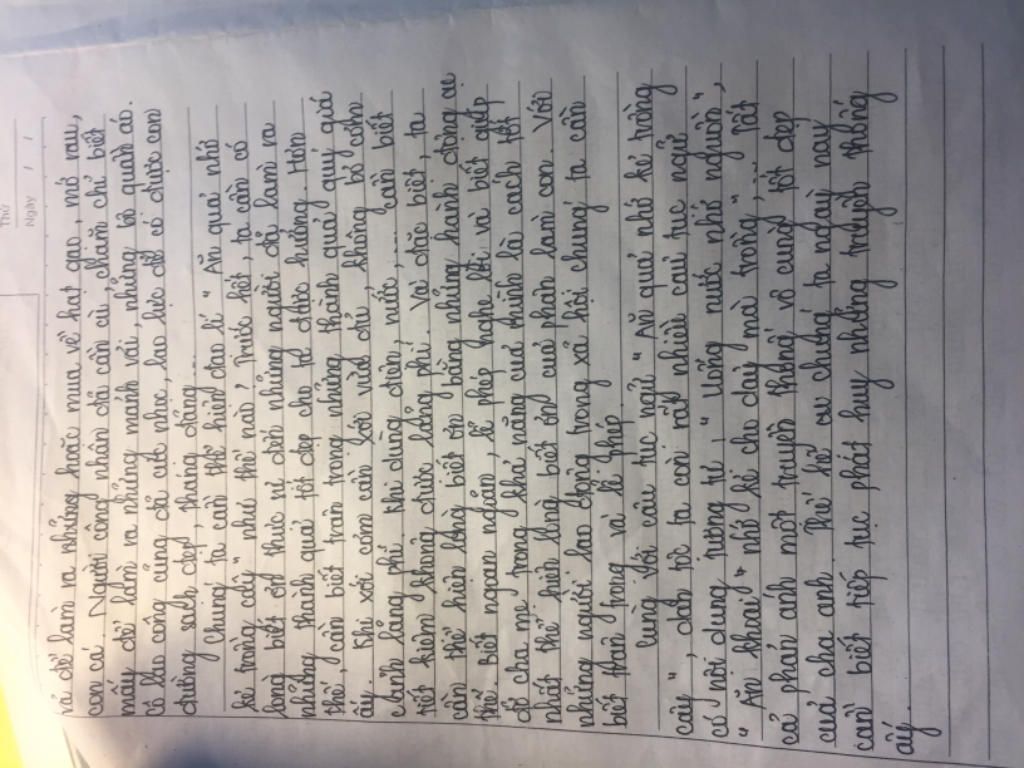 Thứ
Ngày / /
vả để làm ra những hoặc mua về hạt gạo, mớ rau,
con cá. Người công nhân đã cần cù, chăm chỉ biết
mấy để làm ra những mảnh vải, những bộ quần áo.
Cô lao công cũng đã cực nhọc, lao lực để có được con
đường sạch đẹp, phẳng lặng...
Chúng ta cần thể hiện đạo lí "Ăn quả nhớ
kẻ trồng cây" như thế nào? Trước hết, ta cần có
lòng biết ơn thức vì đời những người đã làm ra
những thành quả tốt đẹp cho ta được hưởng. Hơn
thế, cần biết trân trọng những thành quả quý giá
ấy. Khi xới cơm cần lới vừa đủ, không bỏ cơm
chánh lãng phí. Khi dùng điện, nước,... cần biết
tiết kiệm không được lãng phí. Và đặc biệt, ta
cần thể hiện lòng biết ơn bằng những hành động cụ
thể. Biết ngoan ngoãn, lễ phép nghe lời và biết giúp
đỡ cha mẹ trong khả năng của mình là cách tốt
nhất thể hiện lòng biết ơn của phận làm con. Với
những người lao động trong xã hội chúng ta cần
biết trân trọng và lễ phép.
Cùng với câu tục ngữ "Ăn quả nhớ kẻ trồng
cây", dân tộc ta còn rất nhiều câu tục ngữ
có nội dung tương tự: "Uống nước nhớ nguồn",
"Ăn khoai nhớ kẻ cho dây mà trồng",... Tất
cả phản ánh một truyền thống vô cùng tốt đẹp
của cha anh. Thế hệ chúng ta ngày nay
cần biết tiếp tục phát huy những truyền thống
ấy.